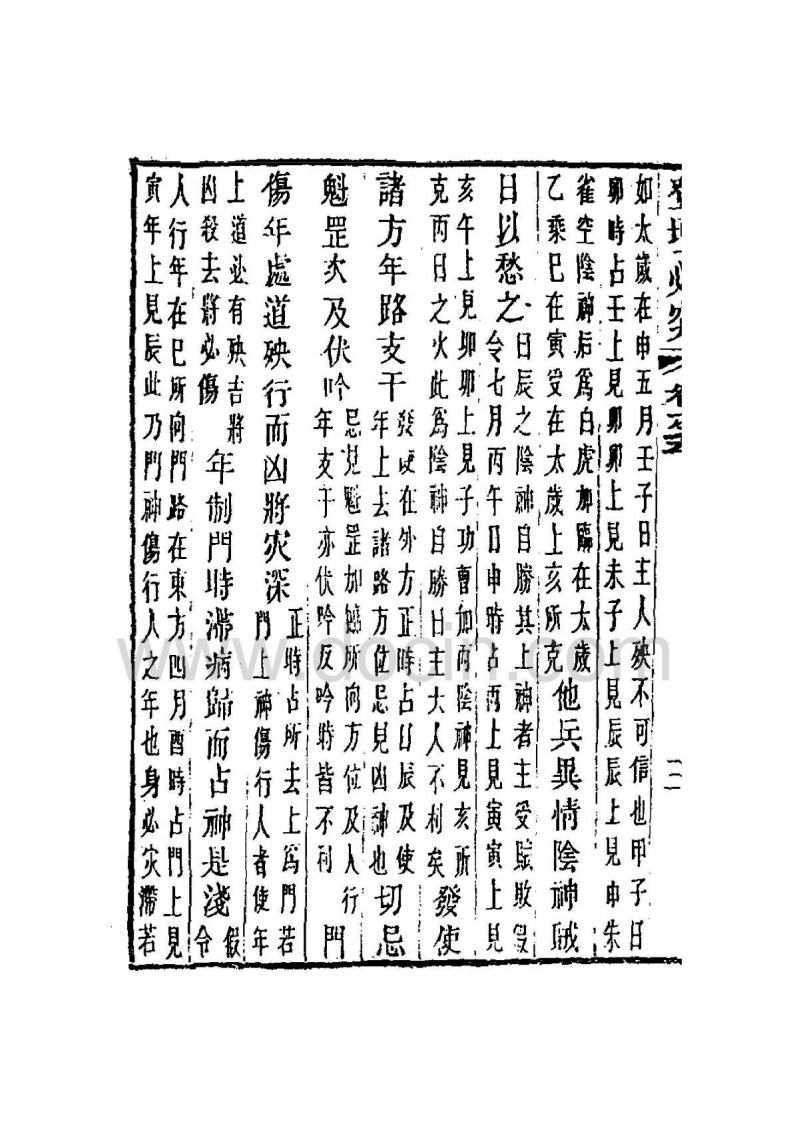 登壇必究 卷之六
二
如太歲在申五月壬子日主人殃不可信也甲子日
卯時占壬上見卯卯上見未子上見辰辰上見申朱
雀空陰神后爲白虎加臨在太歲
乙乘巳在寅受在太歲上亥所克
他兵異情陰神賊
日以愁之
日辰之陰神自勝其上神者主受賊敗
令七月丙午日申時占丙上見寅寅上見
亥午上見卯卯上見子功曹加丙陰神見亥所
克丙日之火此爲陰神自勝日主大人不利矣
發使
諸方年路支干
發使在外方正時占日辰及使
年上去諸路方位忌見凶神也
切忌
魁罡次及伏吟
忌見魁罡加臨所向方位及人行
年支干亦伏吟反吟時皆不利
門
傷年處道殃行而凶將灾深
正時占所去上爲門若
門上神傷行人者使年
上道必有殃吉將
凶殺去將必傷
年制門時滯病歸而占神是淺
假
令
人行年在巳所向門路在東方四月酉時占門上見
寅年上見辰此乃門神傷行人之年也身必灾滯若
www.docin.com